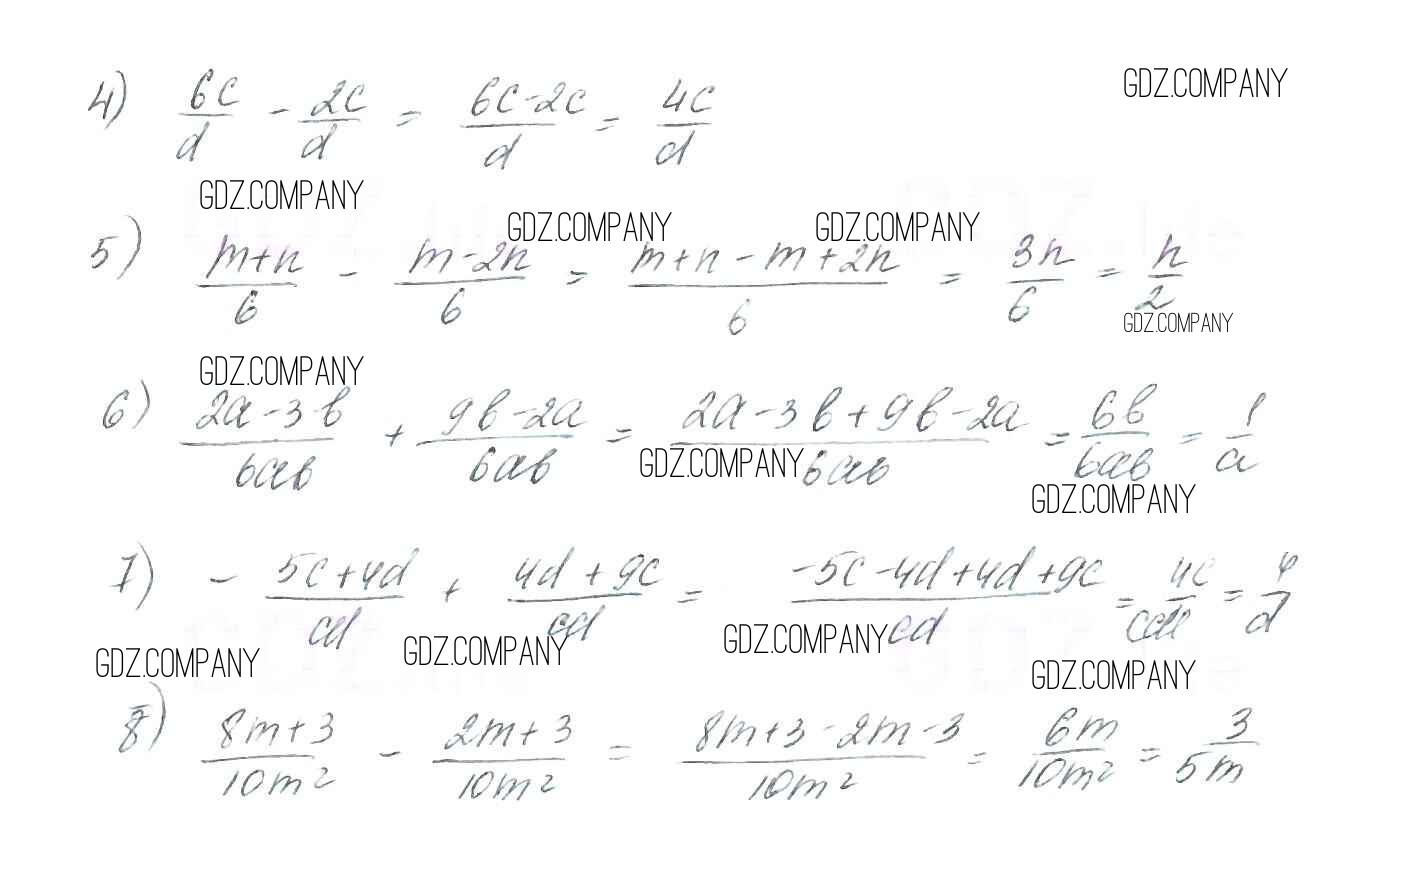 GDZ.COMPANY
4) 6c/d - 2c/d = (6c-2c)/d = 4c/d
GDZ.COMPANY
GDZ.COMPANY GDZ.COMPANY
5) (m+n)/6 - (m-2n)/6 = (m+n-m+2n)/6 = 3n/6 = n/2
GDZ.COMPANY
GDZ.COMPANY
6) (2a-3b)/6ab + (9b-2a)/6ab = (2a-3b+9b-2a)/6ab = 6b/6ab = 1/a
GDZ.COMPANY
GDZ.COMPANY
7) - (5c+4d)/cd + (4d+9c)/cd = (-5c-4d+4d+9c)/cd = 4c/cd = 4/d
GDZ.COMPANY GDZ.COMPANY GDZ.COMPANY
GDZ.COMPANY
8) (8m+3)/10m² - (2m+3)/10m² = (8m+3-2m-3)/10m² = 6m/10m² = 3/5m